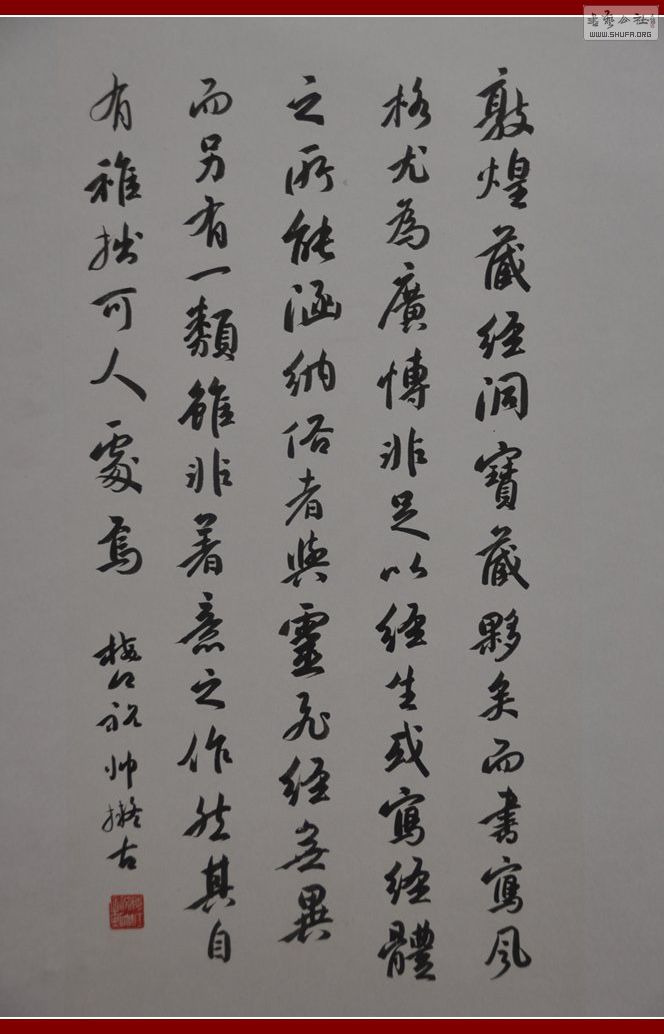 敦煌藏經洞寶藏夥矣而書寫風
格尤為廣博非足以經生或寫經體
之所能涵納俗者與靈飛經無異
而另有一類雖非著意之作然其自
有稚拙可人處焉
梅江祝帅擬古
書藝公社
WWW.SHUFA.ORG